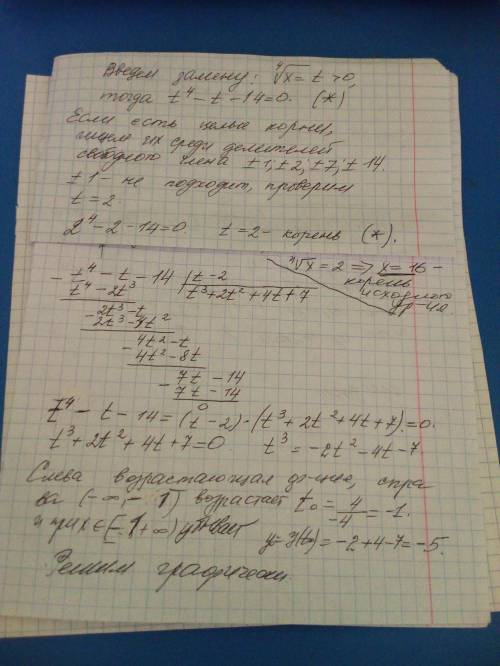 Введем замену: ⁴√x = t > 0,
тогда t⁴ - t - 14 = 0. (*)
Если есть целые корни,
ищем их среди делителей
свободного члена ± 1; ± 2; ± 7; ± 14.
± 1 - не подходит, проверим
t = 2
2⁴ - 2 - 14 = 0. t = 2 - корень (*).
⁴√x = 2 => x = 16 -
корень
исходного
ур-ия
- t⁴ - t - 14 | t - 2
t⁴ - 2t³ t³ + 2t² + 4t + 7
- 2t³ - t
2t³ - 4t²
- 4t² - t
4t² - 8t
- 7t - 14
7t - 14
0
t⁴ - t - 14 = (t - 2) · (t³ + 2t² + 4t + 7) = 0.
t³ + 2t² + 4t + 7 = 0 t³ = -2t² - 4t - 7
Слева возрастающая ф-ция, спра
ва (-∞; -1) возрастает t₀ = 4/-4 = -1.
и при x ∈ [-1; +∞) убывает
y = y(t₀) = -2 + 4 - 7 = -5.
Решим графически.